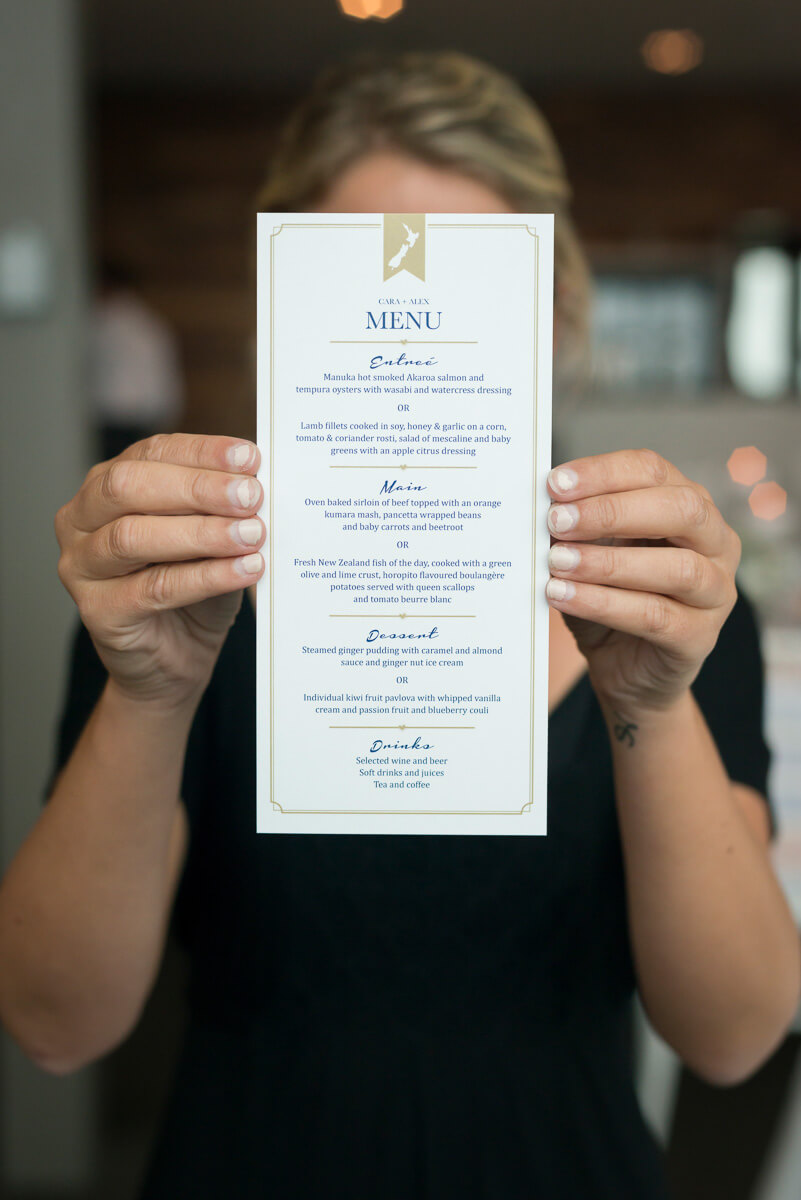 CARA + ALEX
MENU
Entreé
Manuka hot smoked Akaroa salmon and
tempura oysters with wasabi and watercress dressing
OR
Lamb fillets cooked in soy, honey & garlic on a corn,
tomato & coriander rosti, salad of mescaline and baby
greens with an apple citrus dressing
Main
Oven baked sirloin of beef topped with an orange
kumara mash, pancetta wrapped beans
and baby carrots and beetroot
OR
Fresh New Zealand fish of the day, cooked with a green
olive and lime crust, horopito flavoured boulangère
potatoes served with queen scallops
and tomato beurre blanc
Dessert
Steamed ginger pudding with caramel and almond
sauce and ginger nut ice cream
OR
Individual kiwi fruit pavlova with whipped vanilla
cream and passion fruit and blueberry couli
Drinks
Selected wine and beer
Soft drinks and juices
Tea and coffee